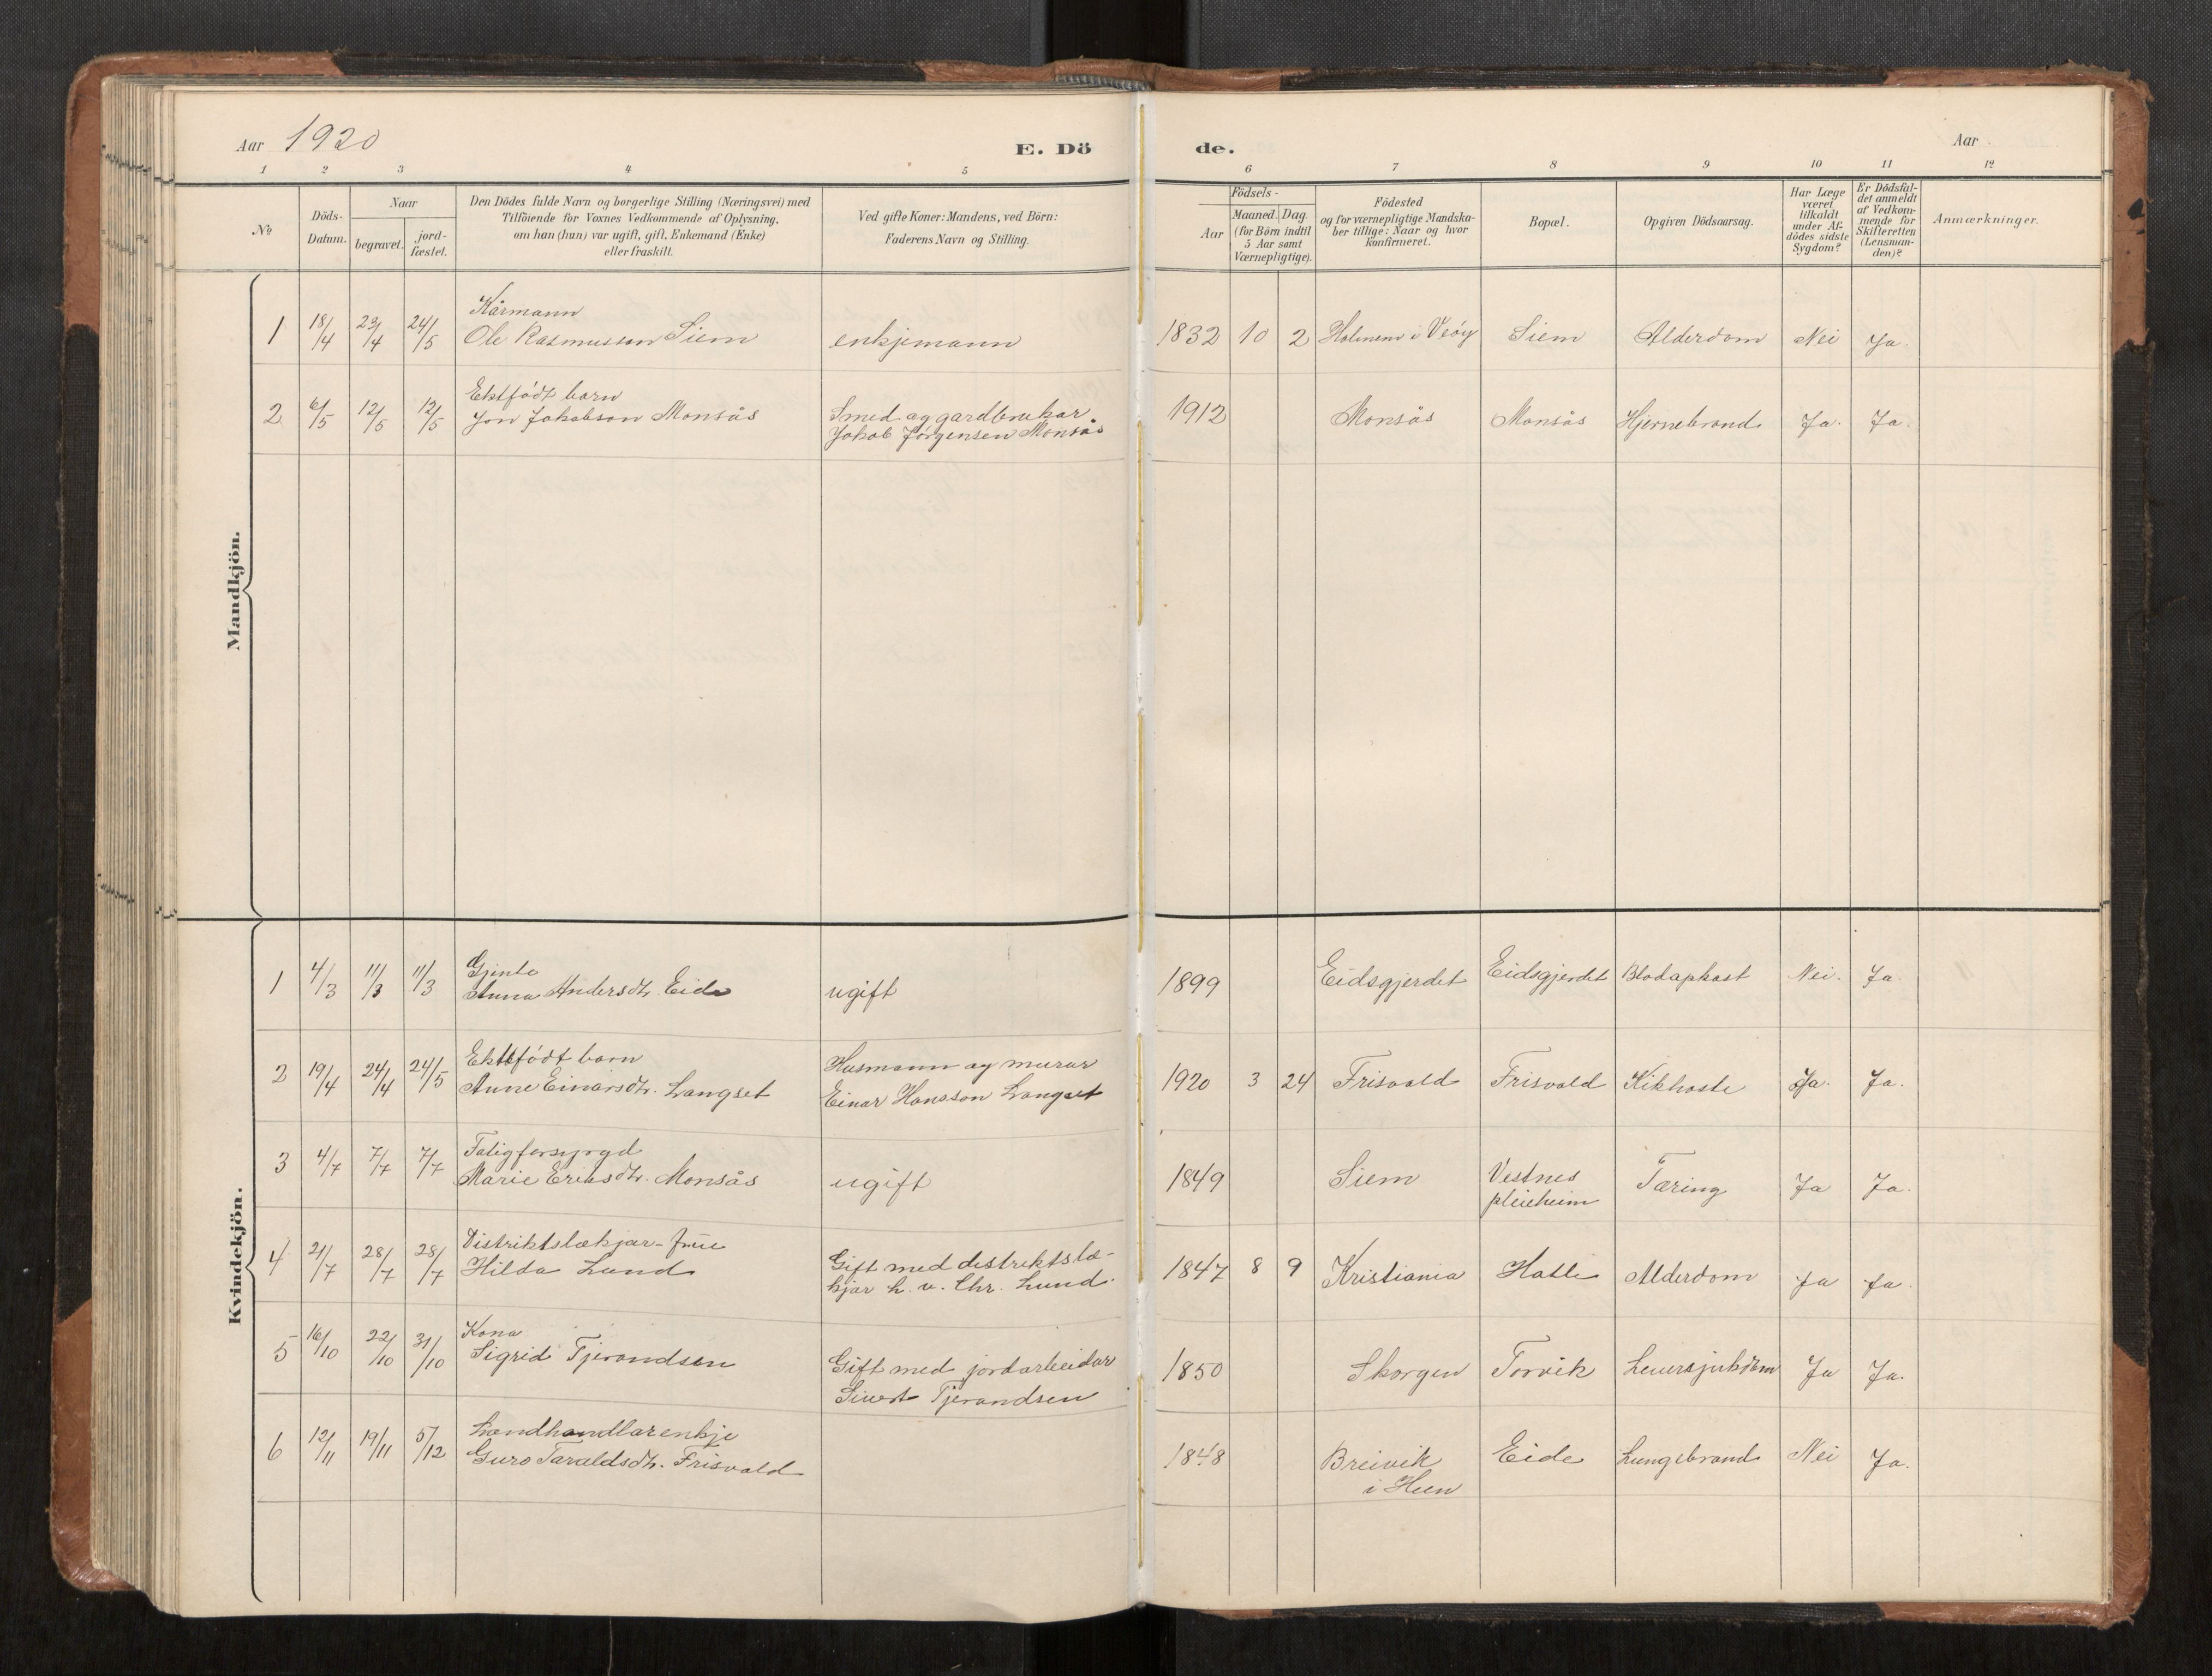 Aar 1920 E. Dö de. Aar
1 2 3 4 5 6 7 8 9 10 11 12
No
Döds-
Datum.
Naar
begravet.
jord-
fæstet.
Den Dödes fulde Navn og borgerlige Stilling (Næringsvei) med
Tilföiende for Voxnes Vedkommende af Oplysning,
om han (hun) var ugift, gift, Enkemand (Enke)
eller fraskilt.
Ved gifte Koner: Mandens, ved Börn:
Faderens Navn og Stilling.
Födsels-
Aar
Maaned. Dag.
(for Börn indtil
5 Aar samt
Værnepligtige).
Födested
og for værnepligtige Mandska-
ber tillige: Naar og hvor
konfirmeret.
Bopæl.
Opgiven Dödsaarsag.
Har Læge
været
tilkaldt
under Af-
dödes sidste
Sygdom?
Er Dödsfal-
det anmeldt
af Vedkom-
mende for
Skifteretten
(Lensman-
den)?
Anmærkninger.
Mandkjön.
Kårmann
1 18/4 23/4 24/5 Ole Rasmusson Siem enkjemann 1832 10 2 Holmem i Veöy Siem Alderdom Nei Ja
Ektfödt barn
2 6/5 12/5 12/5 Jon Jakobson Monsås Smed og gardbrukar Jakob Jörgensen Monsås 1912 Monsås Monsås Hjernebrand Ja. Ja.
Kvindekjön.
Gjente
1 4/3 11/3 11/3 Anna Andersdtr. Eide ugift 1899 Eidsgjerdet Eidsgjerdet Blodapkast Nei. Ja.
Ektefödt barn
2 19/4 24/4 24/5 Anne Einarsdtr. Langset Husmann og murar Einar Hansson Langset 1920 3 24 Frisvold Frisvold Kikhoste Ja. Ja.
Fatigforsyrgd
3 4/7 7/7 7/7 Marie Eriksdtr. Monsås ugift 1849 Siem Vestnes pleieheim Tæring Ja Ja.
Distriktslækjar-frue
4 21/7 28/7 28/7 Hilda Lund Gift med distriktslæ-
kjar h. v. Chr. Lund. 1847 8 9 Kristiania Hatle Alderdom Ja Ja
Kona
5 16/10 22/10 31/10 Sigrid Tjerandsen Gift med jordarbeidar Sivert Tjerandsen 1850 Skorgen Torvik Leversjukdom Ja Ja.
Landhandlarenkje
6 12/11 19/11 5/12 Guro Taraldsdtr. Frisvold 1848 Breivik i Hen Eide Lungebrand Nei Ja.